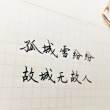 孤城雪纷纷
故城无故人